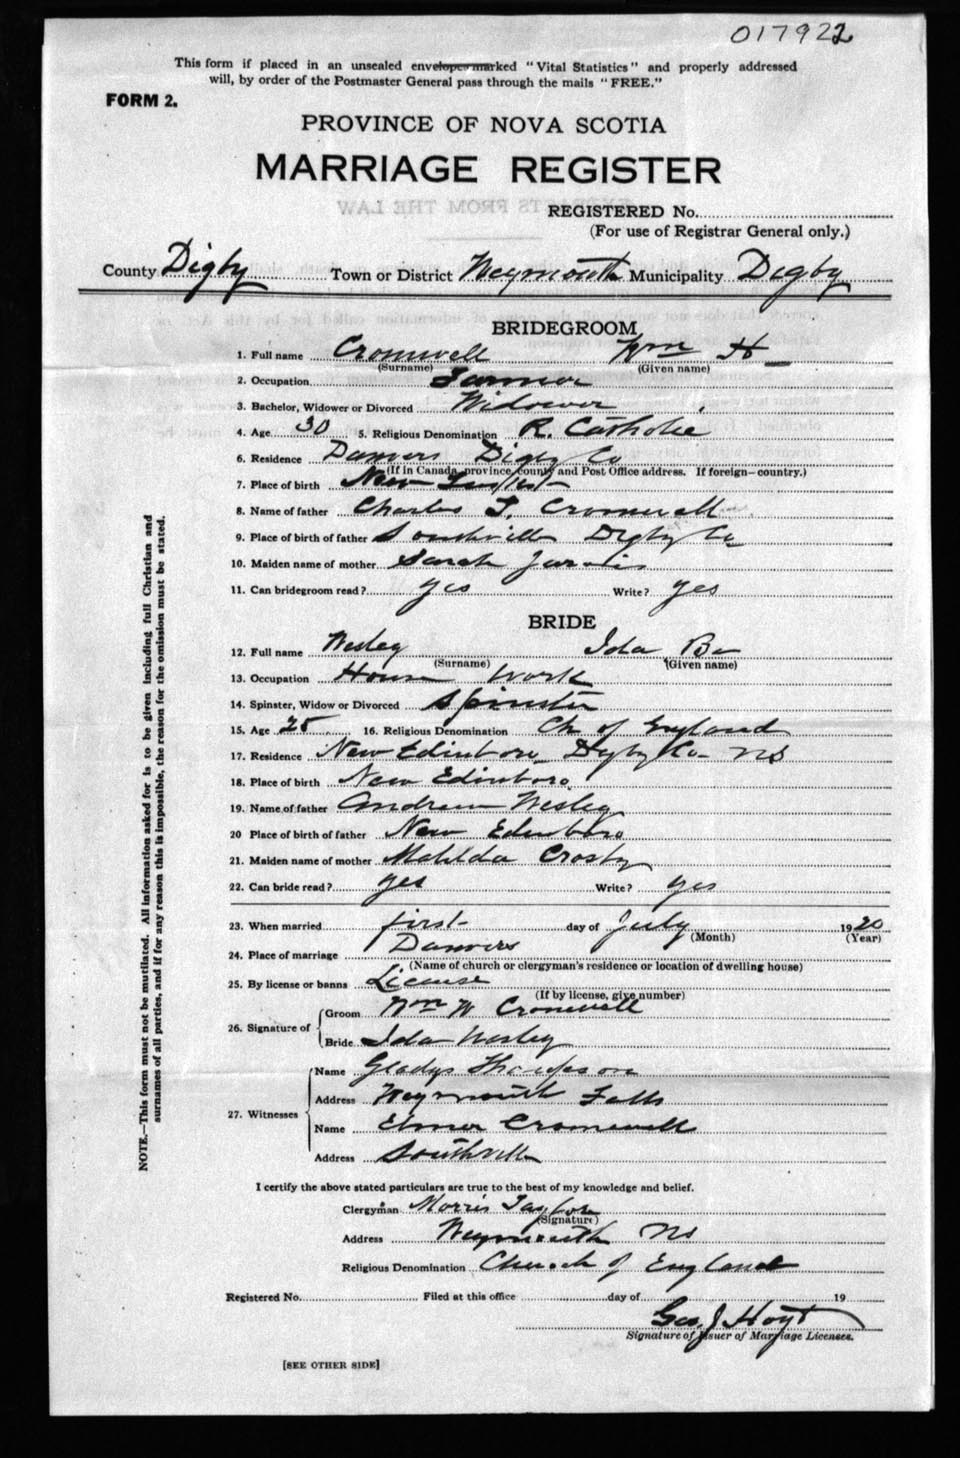 017922
This form if placed in an unsealed envelope marked "Vital Statistics" and properly addressed
will, by order of the Postmaster General pass through the mails "FREE."
FORM 2.
PROVINCE OF NOVA SCOTIA
MARRIAGE REGISTER
REGISTERED No.
(For use of Registrar General only.)
County Digby Town or District Weymouth Municipality Digby
BRIDEGROOM
1. Full name Cromwell Wm H
(Surname) (Given name)
2. Occupation Farmer
3. Bachelor, Widower or Divorced Widower
4. Age 30 5. Religious Denomination R. Catholic
6. Residence Danvers Digby Co
(If in Canada, province, county and Post Office address. If foreign—country.)
7. Place of birth New
8. Name of father Charles Cromwell
9. Place of birth of father Southville Digby Co
10. Maiden name of mother Sarah Jarvis
11. Can bridegroom read? yes Write? yes
BRIDE
12. Full name Wesley Ida
(Surname) (Given name)
13. Occupation House Work
14. Spinster, Widow or Divorced Spinster
15. Age 25 16. Religious Denomination Ch of England
17. Residence New Edinboro Digby Co NS
18. Place of birth New Edinboro
19. Name of father Andrew Wesley
20 Place of birth of father New Edinboro
21. Maiden name of mother Matilda Crosby
22. Can bride read? yes Write? yes
23. When married first day of July 1920
(Month) (Year)
24. Place of marriage Danvers
(Name of church or clergyman's residence or location of dwelling house)
25. By license or banns License
(If by license, give number)
26. Signature of Groom Wm W Cromwell
Bride Ida Wesley
27. Witnesses Name Gladys
Address Weymouth Falls
Name Elmer Cromwell
Address Southville
I certify the above stated particulars are true to the best of my knowledge and belief.
Clergyman Morris Taylor
(Signature)
Address Weymouth NS
Religious Denomination Church of England
Registered No. Filed at this office day of 19
Geo. J Hoyt
Signature of Issuer of Marriage Licenses.
[SEE OTHER SIDE]
NOTE.—This form must not be mutilated. All information asked for is to be given including full Christian and
surnames of all parties, and if for any reason this is impossible, the reason for the omission must be stated.